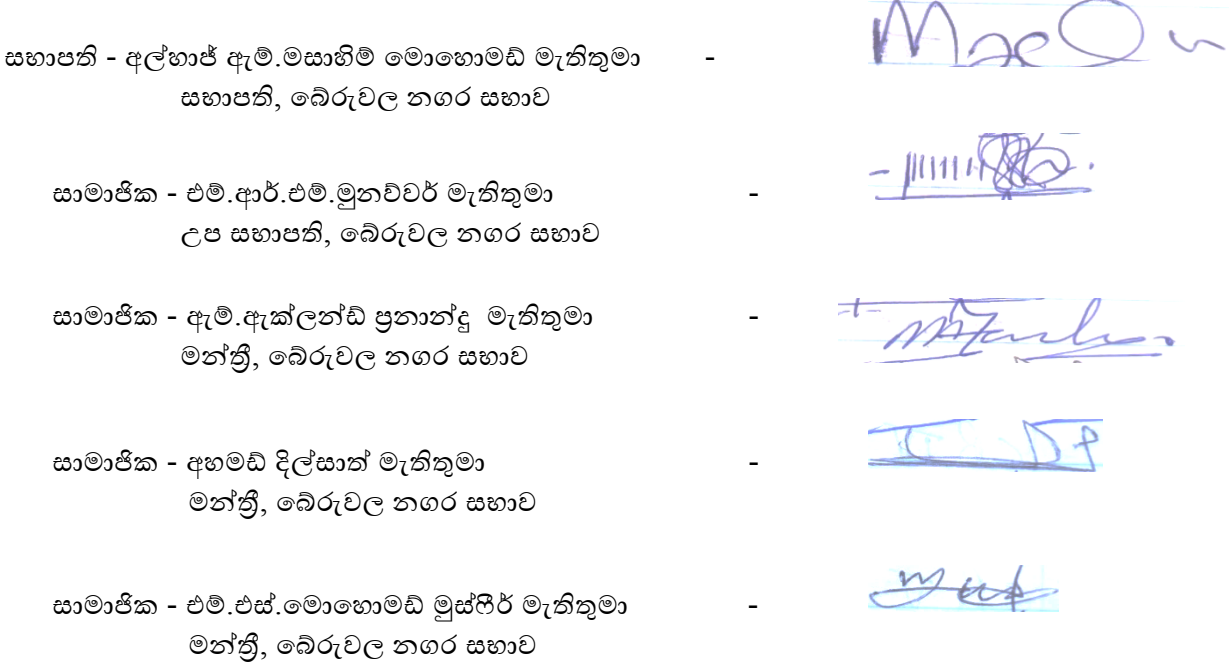 සභාපති - අල්හාජ් ඇම්.මසාහිම් මොහොමඩ් මැතිතුමා -
සභාපති, බේරුවල නගර සභාව
සාමාජික - එම්.ආර්.එම්.මුනව්වර් මැතිතුමා -
උප සභාපති, බේරුවල නගර සභාව
සාමාජික - ඇම්.ඇක්ලන්ඩ් ප්‍රනාන්දු මැතිතුමා -
මන්ත්‍රී, බේරුවල නගර සභාව
සාමාජික - අහමඩ් දිල්සාත් මැතිතුමා -
මන්ත්‍රී, බේරුවල නගර සභාව
සාමාජික - එම්.එස්.මොහොමඩ් මුස්ෆීර් මැතිතුමා -
මන්ත්‍රී, බේරුවල නගර සභාව